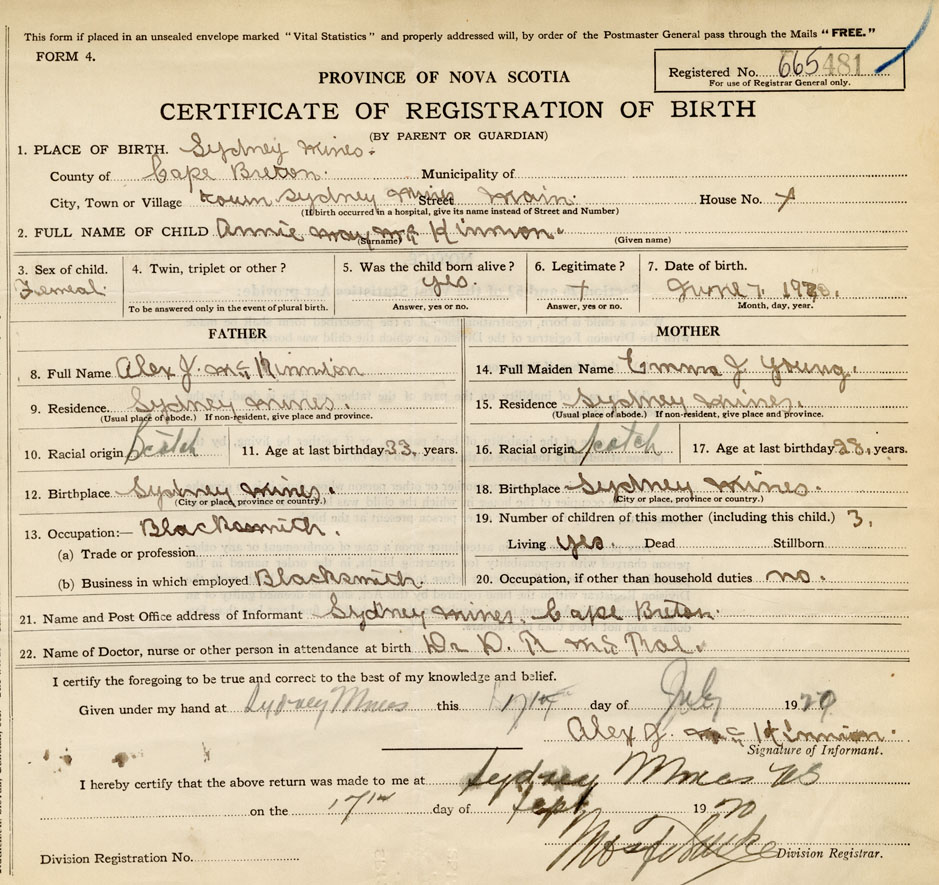 This form if placed in an unsealed envelope marked "Vital Statistics" and properly addressed will, by order of the Postmaster General pass through the Mails "FREE."
FORM 4.
Registered No. 665481
For use of Registrar General only.
PROVINCE OF NOVA SCOTIA
CERTIFICATE OF REGISTRATION OF BIRTH
(BY PARENT OR GUARDIAN)
1. PLACE OF BIRTH. Sydney mines.
County of Cape Breton. Municipality of
City, Town or Village town Sydney Mines Street Main. House No.
(If birth occurred in a hospital, give its name instead of Street and Number)
2. FULL NAME OF CHILD Annie may Mc Kinnion.
(Surname) (Given name)
3. Sex of child. 4. Twin, triplet or other? 5. Was the child born alive? 6. Legitimate? 7. Date of birth.
Femeal. yes. June 7. 19
To be answered only in the event of plural birth. Answer, yes or no. Answer, yes or no. Month, day, year.
FATHER MOTHER
8. Full Name Alex J. Mc Kinnion 14. Full Maiden Name Emma J Young.
9. Residence. Sydney mines. 15. Residence Sydney mines.
(Usual place of abode.) If non-resident, give place and province. (Usual place of abode.) If non-resident, give place and province.
10. Racial origin Scotch 11. Age at last birthday 33. years. 16. Racial origin Scotch 17. Age at last birthday 28, years.
12. Birthplace Sydney mines. 18. Birthplace Sydney mines.
(City or place, province or country.) (City or place, province or country.)
13. Occupation:— Blacksmith. 19. Number of children of this mother (including this child.) 3.
(a) Trade or profession. Living yes. Dead Stillborn
(b) Business in which employed Blacksmith. 20. Occupation, if other than household duties no.
21. Name and Post Office address of Informant Sydney mines, Cape Breton.
22. Name of Doctor, nurse or other person in attendance at birth Dr D. R Mc Rae.
I certify the foregoing to be true and correct to the best of my knowledge and belief.
Given under my hand at Sydney Mines this 17th day of July 19
Alex J. Mc Kinnion.
Signature of Informant.
I hereby certify that the above return was made to me at Sydney Mines NS
on the 17th day of Sept 1920
Division Registration No. Division Registrar.